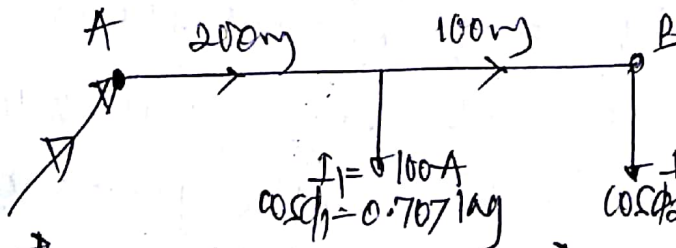 A 200m 100m B
I1 = 100A
cosφ1 = 0.707 lag